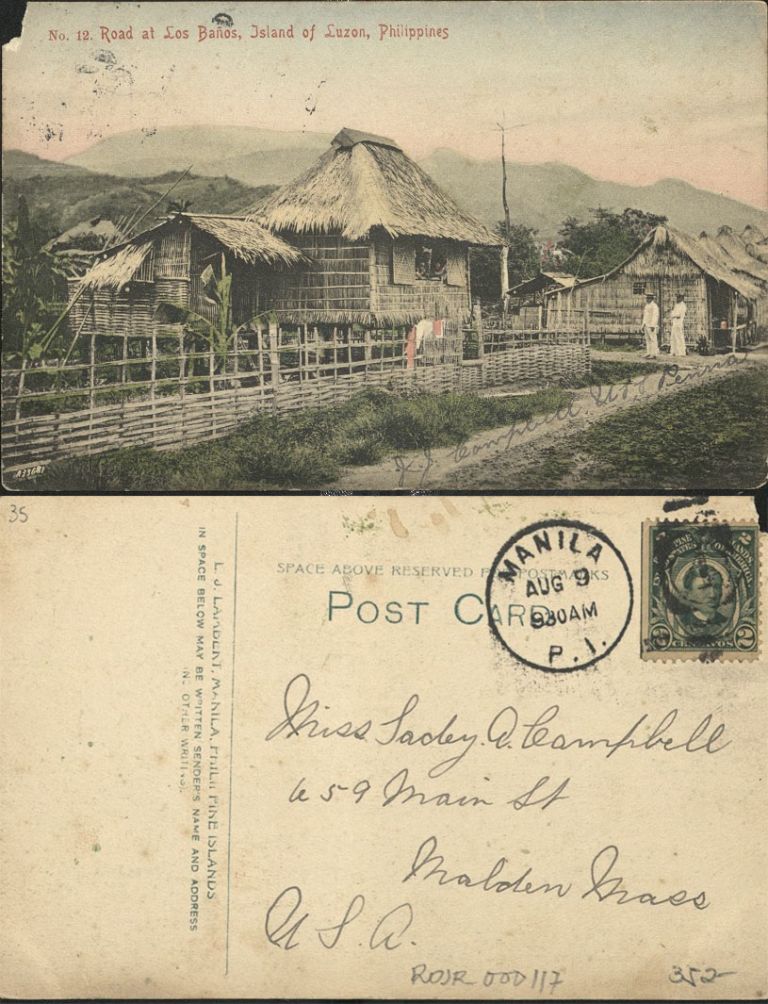 No. 12. Road at Los Baños, Island of Luzon, Philippines
J. J. Campbell U.S.S. Penna
A23681
35
E. J. LAMBERT, MANILA, PHILIPPINE ISLANDS
IN SPACE BELOW MAY BE WRITTEN SENDER'S NAME AND ADDRESS
(NO OTHER WRITING).
SPACE ABOVE RESERVED FOR POSTMARKS
POST CARD
MANILA
AUG 9
930AM
P.I.
2 CENTAVOS 2
Miss Sadey. A. Campbell
659 Main St
Malden Mass
U S. A.
ROJR 000117
352-